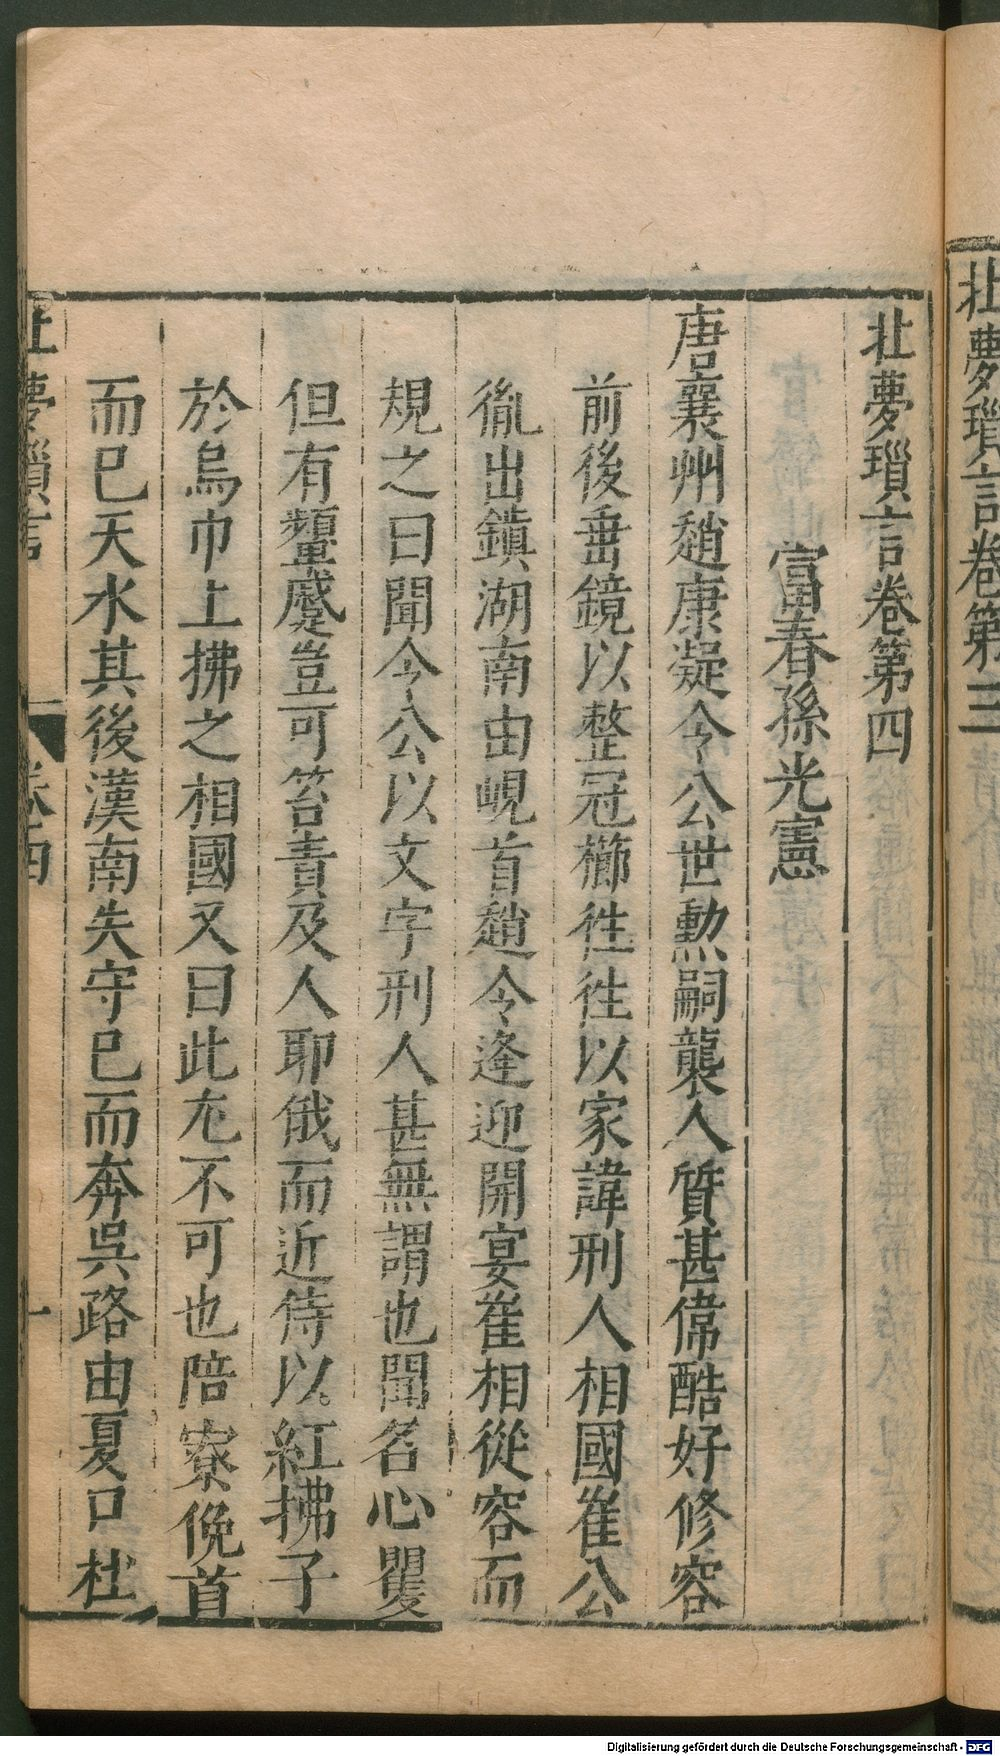 北夢瑣言卷第三
北夢瑣言卷第四
富春孫光憲
唐襄州趙康凝令公世勲嗣襲人質甚偉酷好修容
前後垂鏡以整冠櫛徃徃以家諱刑人相國崔公
胤出鎮湖南由峴首趙令逢迎開宴崔相從容而
規之曰聞令公以文字刑人甚無謂也聞名心瞿
但有顰蹙豈可笞責及人耶俄而近侍以紅拂子
於烏巾上拂之相國又曰此尤不可也陪寮俛首
而已天水其後漢南失守已而奔吳路由夏口杜
北夢瑣言 卷四 一
Digitalisierung gefördert durch die Deutsche Forschungsgemeinschaft - DFG